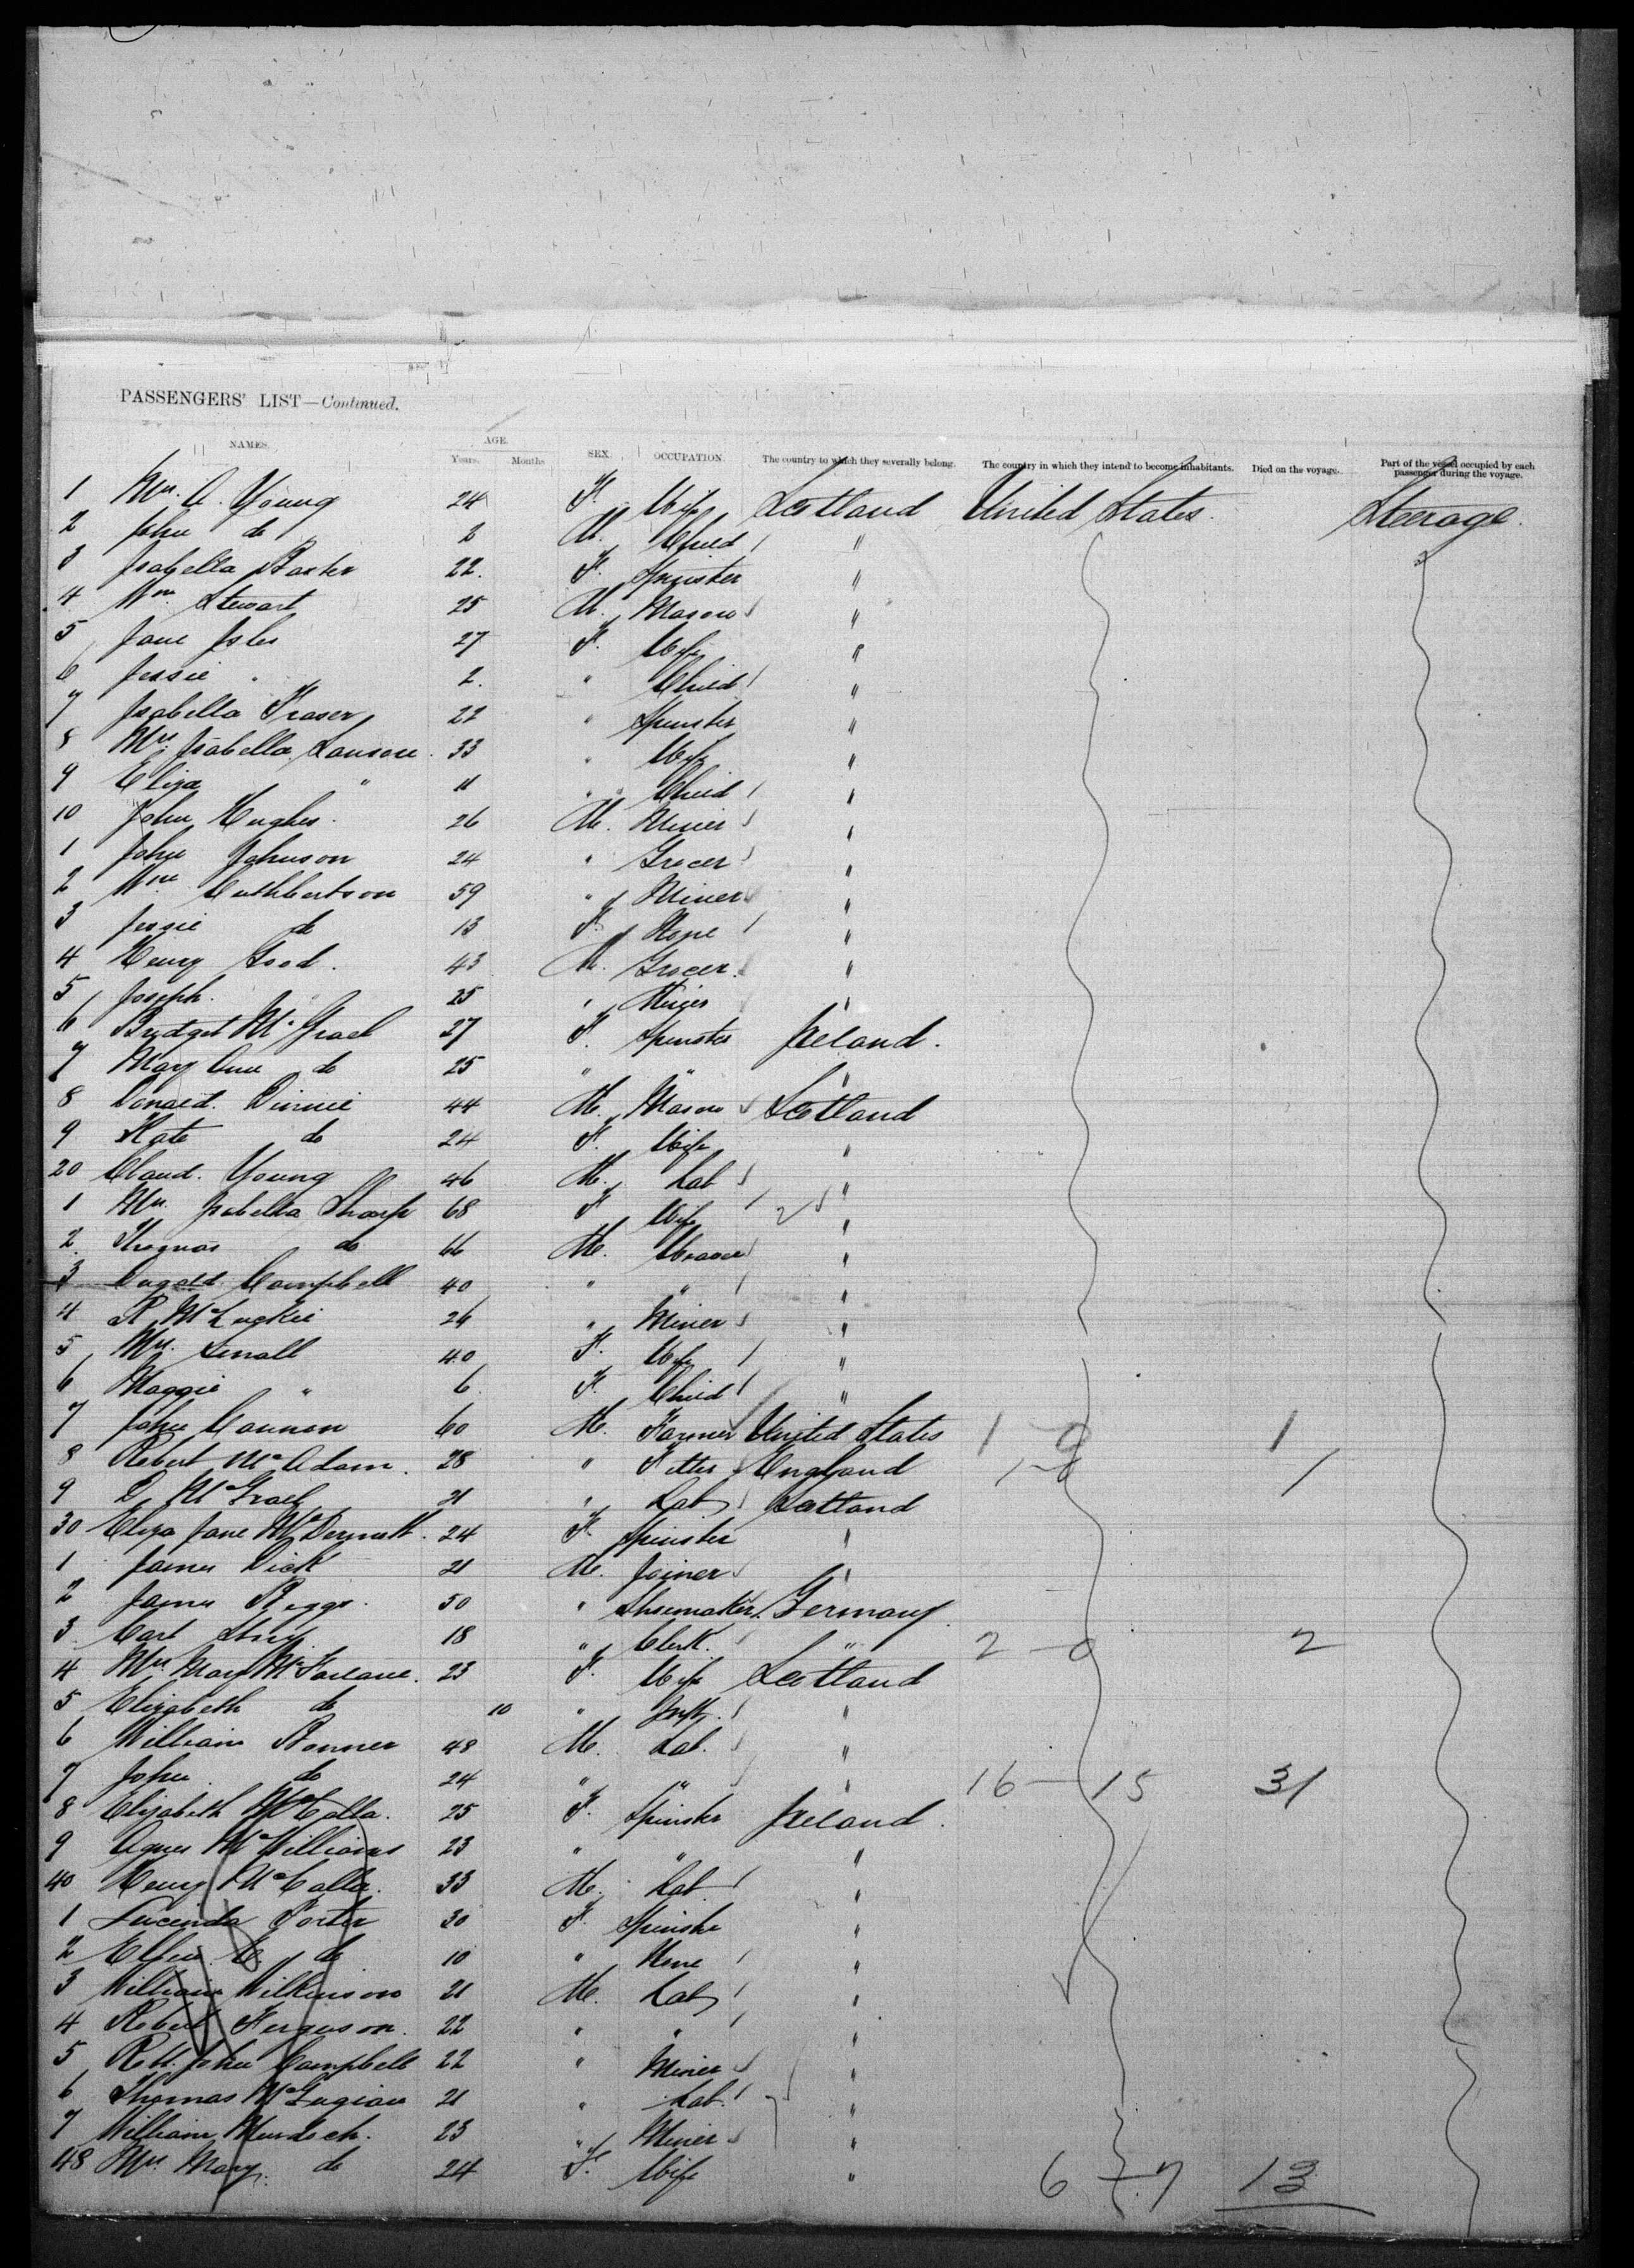 PASSENGERS' LIST—Continued.
NAMES. AGE. Years. Months SEX. OCCUPATION. The country to which they severally belong. The country in which they intend to become inhabitants. Died on the voyage. Part of the vessel occupied by each passenger during the voyage.
1 Mrs. A. Young 24 F. Wife Scotland United States. Steerage.
2 John do 2 M. Child "
3 Isabella Baxter 22. F. Spinster "
4 Wm. Stewart 25 M. Mason "
5 Jane Isles 27 F. Wife "
6 Jessie " 2. " Child "
7 Isabella Fraser 22 " Spinster "
8 Mrs. Isabella Lawson 33 " Wife "
9 Eliza " 11 " Child "
10 John Hughes 26 M. Miner "
1 John Johnson 24 " Grocer "
2 Wm. Cuthbertson 59 " Miner "
3 Jessie do 13 F. None "
4 Henry Good. 43 M. Grocer "
5 Joseph. 25 " Miner "
6 Bridget McGrael 27 F. Spinster Ireland.
7 Mary Ann do 25 " " "
8 Donald. Dinnie 44 M. Mason Scotland
9 Kate do 24 F. Wife "
20 Claud. Young 46 M. Lab "
1 Mrs. Isabella Sharp 68 F Wife "
2. Thomas do 66 M. Weaver "
3 Dugald Campbell 40 " " "
4 R McLuckie 26 " Miner "
5 Mrs. Small 40 F. Wife "
6 Maggie " 6 F. Child "
7 John Cannon 60 M. Farmer United States 1 - 0 1
8 Robert McAdam. 28 " Fitter England 1 - 0 1
9 D. McGrael 21 " Lab Scotland
30 Eliza Jane McDermott. 24 F. Spinster "
1 James Dick 21 M. Joiner "
2 James Riggs. 50 " Shoemaker Germany
3. Carl 18 " Clerk. " 2 - 0 2
4 Mrs. Mary McFarlane. 23 F. Wife Scotland
5 Elizabeth do 10 " Inft. "
6 William Bonner 48 M. Lab. "
7 John do 24 " " " 16 - 15 31
8 Elizabeth McCalla. 25 F. Spinster Ireland.
9 Agnes McWilliams 23 " " "
40 Henry McCalla. 33 M. Lab "
1 Lucinda Porter 30 F. Spinster "
2 Ellen C. do 10 " None "
3 William Wilkinson 21 M. Lab "
4 Robert Ferguson. 22 " " "
5 Robt. John Campbell 22 " Miner "
6 Thomas McGugian 21 " Lab. "
7 William Murdoch. 23 " Miner "
48 Mrs. Mary. do 24 F. Wife " 6 - 7 13